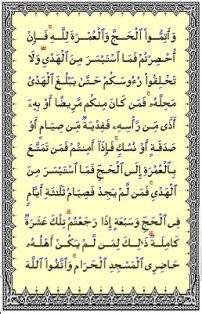 وَأَتِمُّوا۟ ٱلْحَجَّ وَٱلْعُمْرَةَ لِلَّهِ ۚ فَإِنْ
أُحْصِرْتُمْ فَمَا ٱسْتَيْسَرَ مِنَ ٱلْهَدْىِ ۖ وَلَا
تَحْلِقُوا۟ رُءُوسَكُمْ حَتَّىٰ يَبْلُغَ ٱلْهَدْىُ
مَحِلَّهُۥ ۚ فَمَن كَانَ مِنكُم مَّرِيضًا أَوْ بِهِۦٓ
أَذًى مِّن رَّأْسِهِۦ فَفِدْيَةٌ مِّن صِيَامٍ أَوْ
صَدَقَةٍ أَوْ نُسُكٍ ۚ فَإِذَآ أَمِنتُمْ فَمَن تَمَتَّعَ
بِٱلْعُمْرَةِ إِلَى ٱلْحَجِّ فَمَا ٱسْتَيْسَرَ مِنَ
ٱلْهَدْىِ ۚ فَمَن لَّمْ يَجِدْ فَصِيَامُ ثَلَٰثَةِ أَيَّامٍ
فِى ٱلْحَجِّ وَسَبْعَةٍ إِذَا رَجَعْتُمْ ۗ تِلْكَ عَشَرَةٌ
كَامِلَةٌ ۗ ذَٰلِكَ لِمَن لَّمْ يَكُنْ أَهْلُهُۥ
حَاضِرِى ٱلْمَسْجِدِ ٱلْحَرَامِ ۚ وَٱتَّقُوا۟ ٱللَّهَ